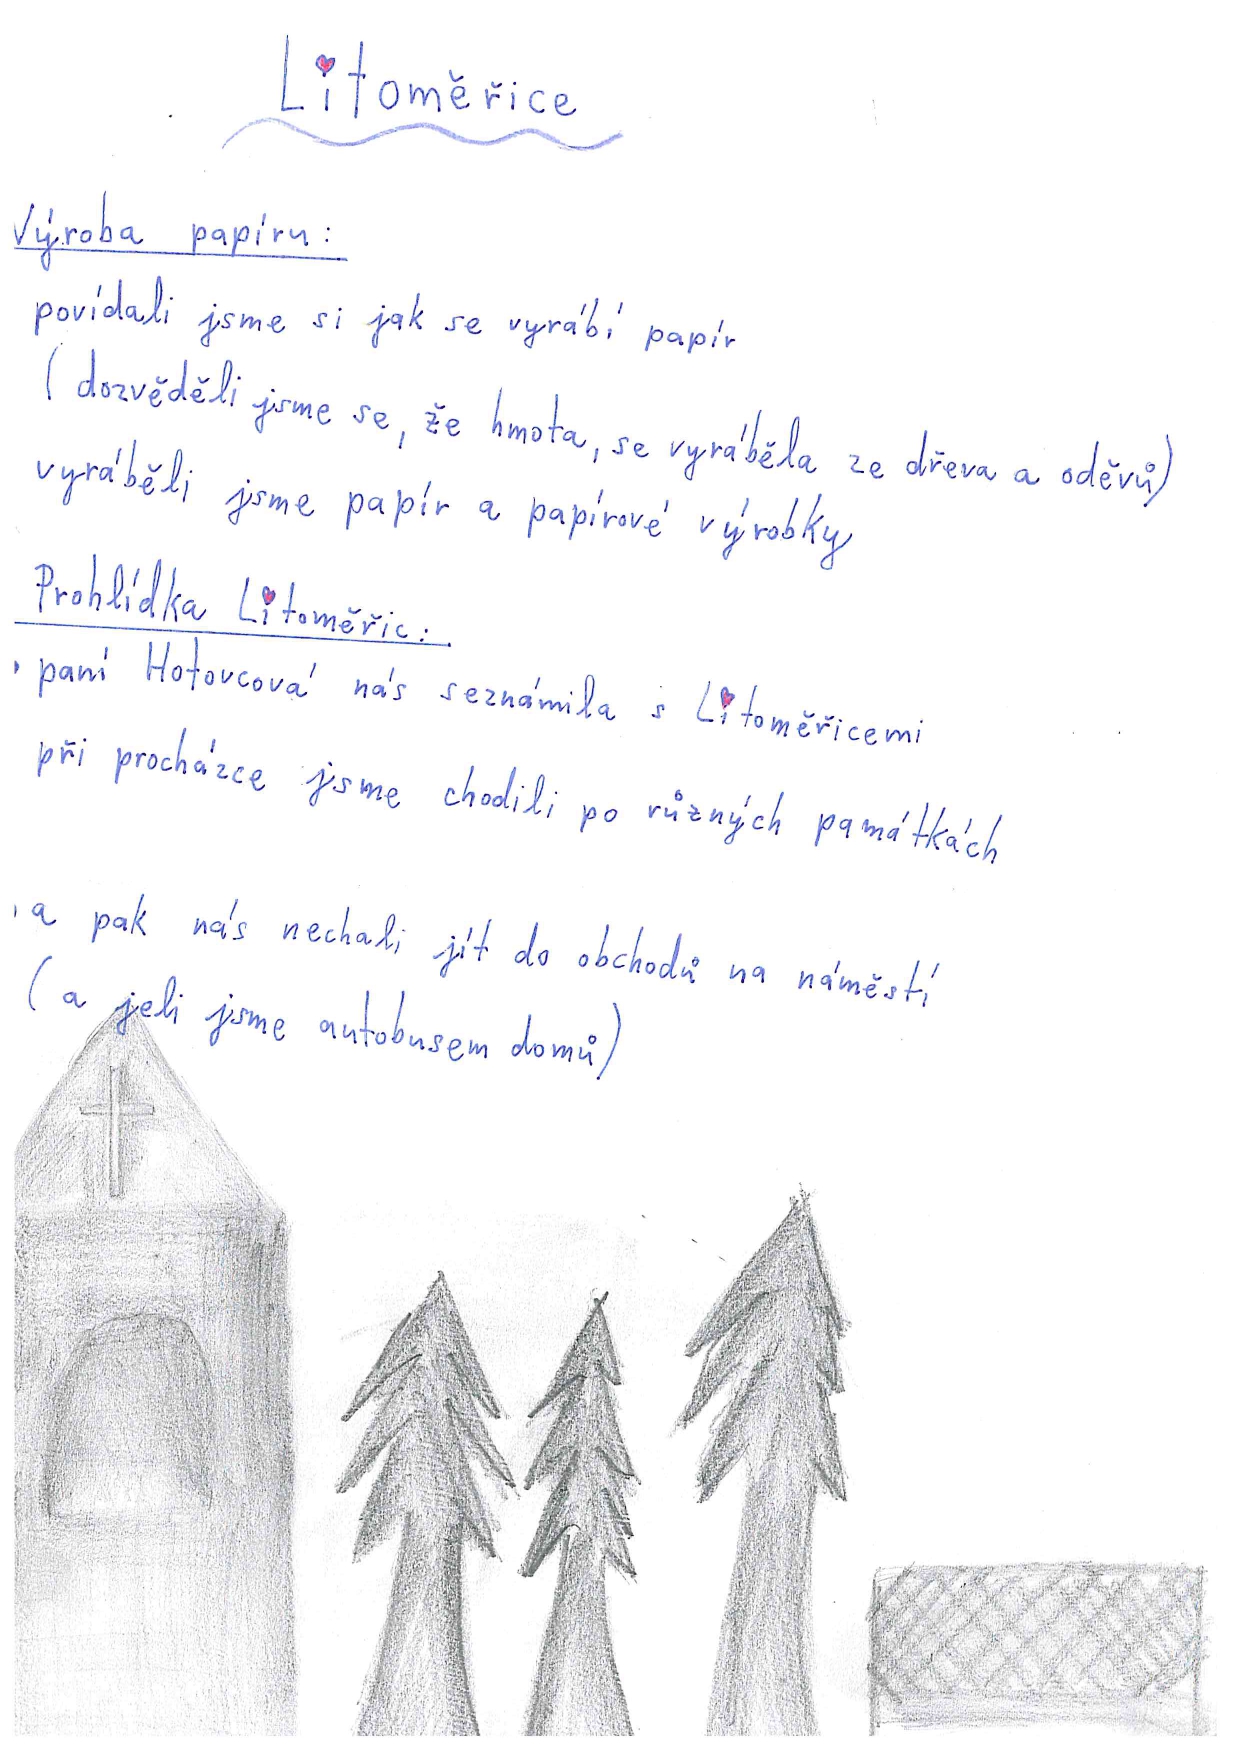 Litoměřice
Výroba papíru:
povídali jsme si jak se vyrábí papír
(dozvěděli jsme se, že hmota, se vyráběla ze dřeva a oděvů)
vyráběli jsme papír a papírové výrobky
Prohlídka Litoměřic:
paní Hotovcová nás seznámila s Litoměřicemi
při procházce jsme chodili po různých památkách
a pak nás nechali jít do obchodů na náměstí
(a jeli jsme autobusem domů)